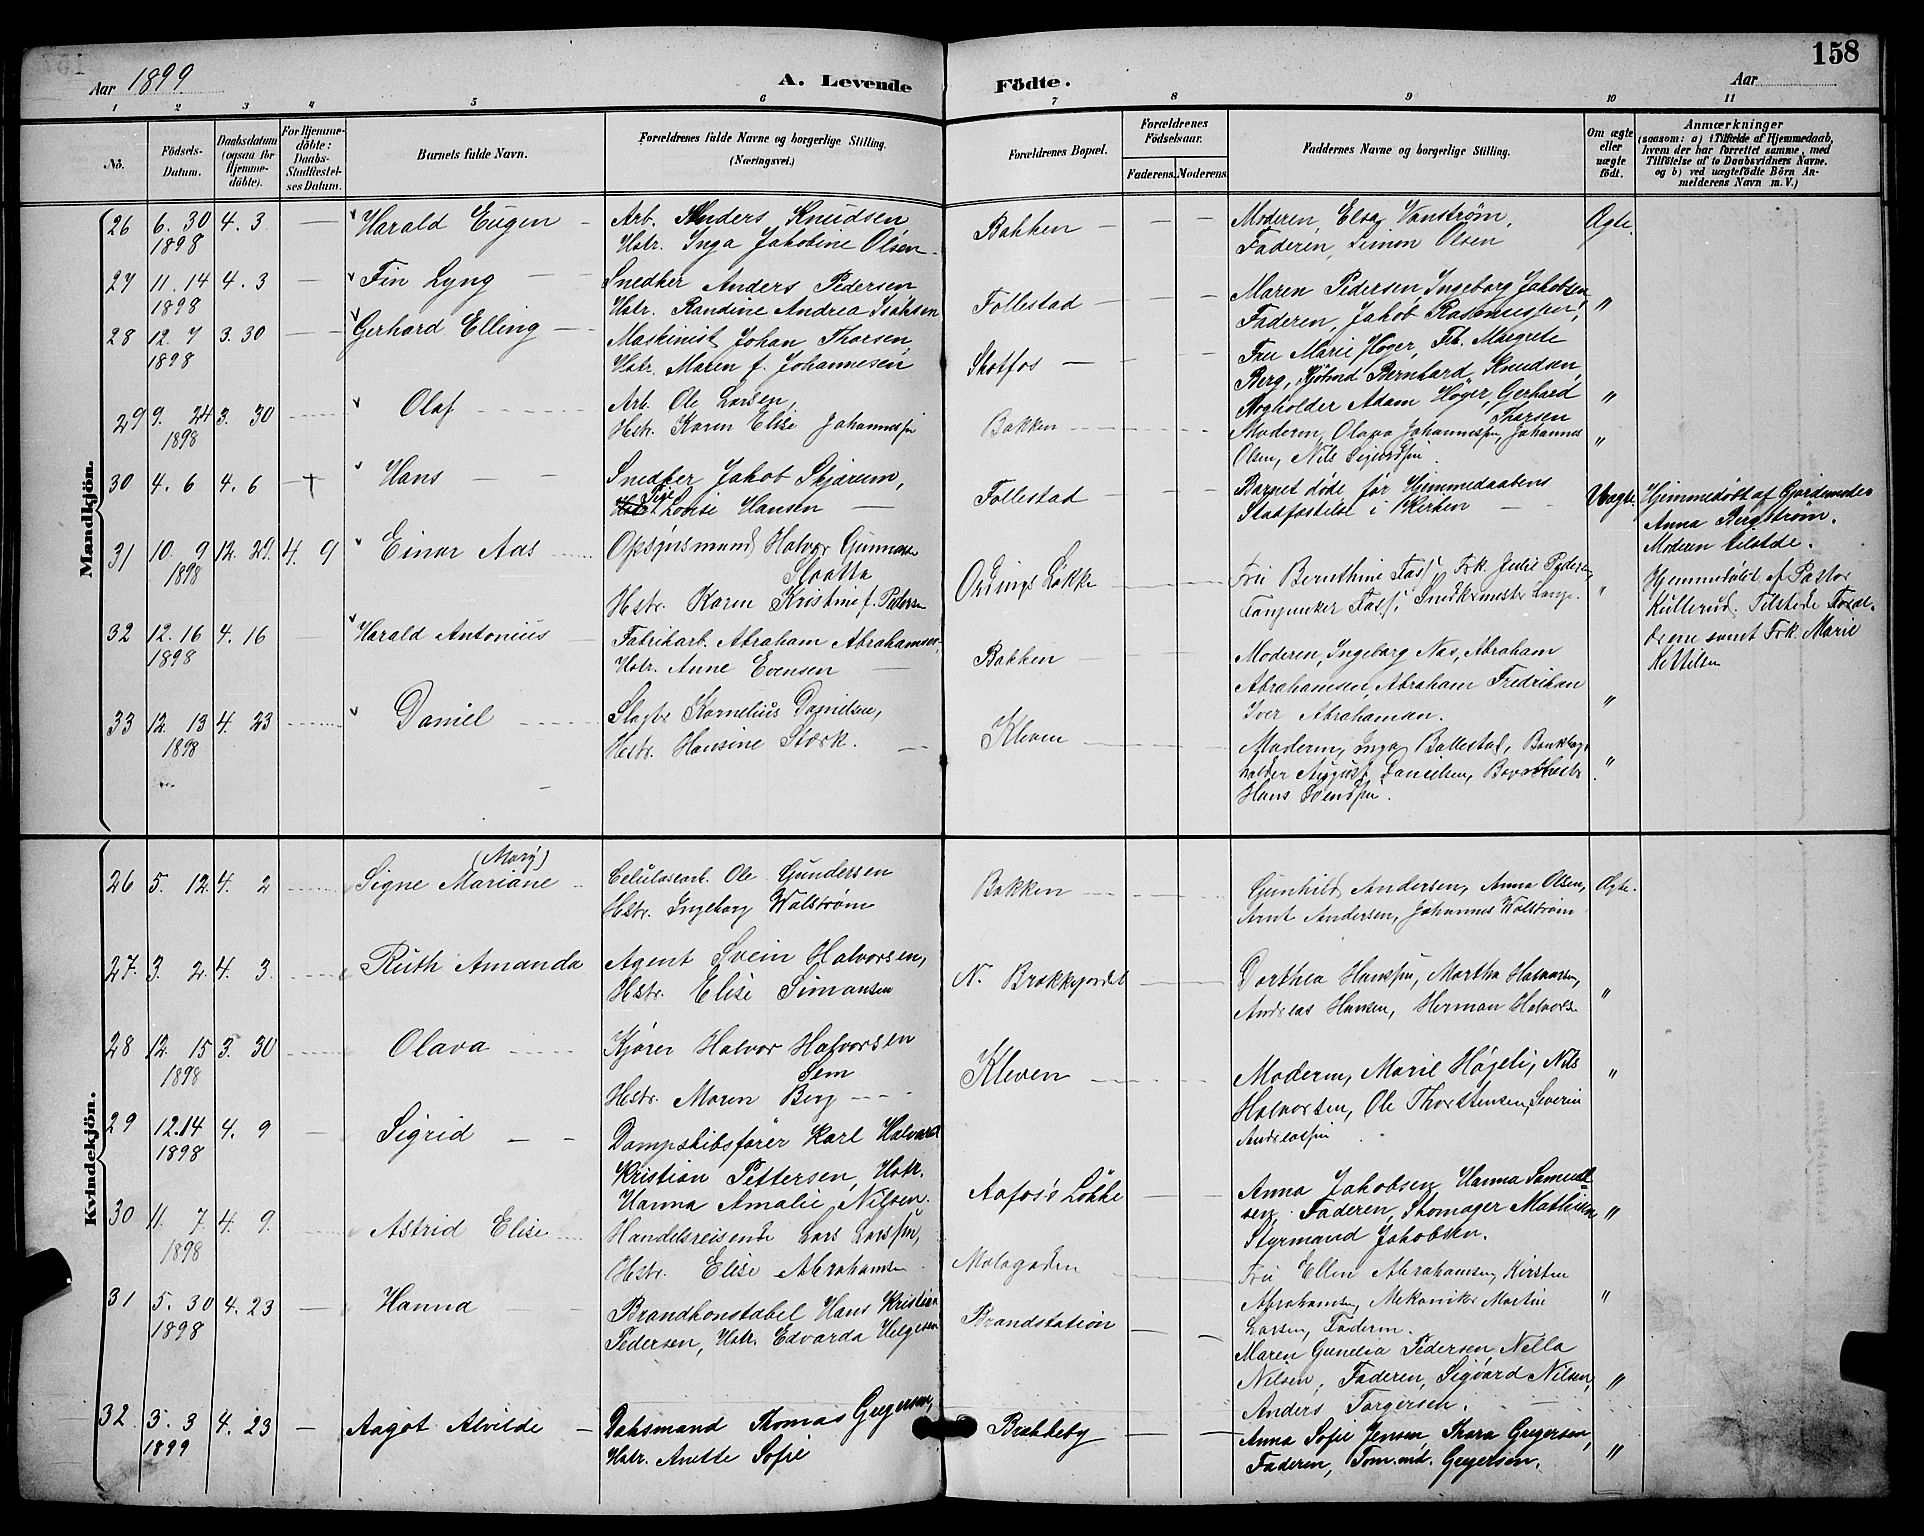 158
Aar 1899
A. Levende Födte.
Aar
1 2 3 4 5 6 7 8 9 10 11
No.
Födsels-Datum.
Daabsdatum (ogsaa for Hjemme-döbte).
For Hjemme-döbte: Daabs-Stadfæstel-ses Datum.
Barnets fulde Navn.
Forældrenes fulde Navne og borgerlige Stilling. (Næringsvei.)
Forældrenes Bopæl.
Forældrenes Födselsaar.
Faderens. Moderens.
Faddernes Navne og borgerlige Stilling.
Om ægte eller uægte födt.
Anmærkninger
(saasom: a) i Tilfælde af Hjemmedaab, hvem der har forrettet samme, med Tilföielse af to Daabsvidners Navne. og b) ved uægtefödte Börn An-melderens Navn m. V.)
Mandkjön.
26 6. 30 1898 4. 3 — Harald Eugen — Arb. Anders Knudsen
Hstr. Inga Jakobine Olsen
Bakken — — —
Moderen, Elsa Vanstrøm,
Faderen, Simon Olsen
Ægte.
27 11. 14 1898 4. 3 — Fin Lyng — Snedker Anders Pedersen
Hstr. Randine Andrea Isaksen
Follestad — — —
Maren Pedersen, Ingeborg Jakobsen,
Faderen, Jakob
"
28 12. 7 1898 3. 30 — Gerhard Elling — Maskinist Johan Thorsen,
Hstr. Maren f. Johannesen
Skotfos — — —
Fru Marie Høyer, Frk. Margrete
Berg, Kjøbmd Bernhard Knudsen,
Bogholder Adam Höyer, Gerhard
Thorsen
"
29 9. 24 1898 3. 30 Olaf Arb. Ole Larsen,
Hstr. Karen Elise Johannesen
Bakken
Moderen, Olava Johannessen, Johannes
Olsen, Nils
"
30 4. 6 4. 6 — † Hans — Snedker Jakob Skjærum,
Pige Lovise Hansen —
Follestad — — —
Barnet døde før Hjemmedaabens
Stadfæstelse i Kirken —
Uægte.
Hjemmedöbt af Gjordemoder
Anna Bergstrøm.
Moderen tilstede.
31 10. 9 1898 12. 29. 4. 9 Einar Aas Opsynsmand Halvor Gunnarsen
Slaatta
Hstr. Karen Kristine f. Pedersen
Løkke
Fru Bernthine Fass, Frk. Julie Pedersen,
Fanjunker Fass, Snedkermester Lange.
"
Hjemmedøbt af Pastor
Kullerud. Tilstede Foræl-
drene samt Frk. Marie
Kittilsen
32 12. 16 1898 4. 16 — Harald Antonius — Fabrikarb. Abraham Abrahamsen,
Hstr. Anne Evensen —
Bakken — — —
Moderen, Ingeborg Nas, Abraham
Abrahamsen, Abraham Fredriksen
Iver Abrahamsen.
"
33 12. 13 1898 4. 23 Daniel Slagter Kornelius Danielsen,
Hstr. Hansine Stærk.
Kleven
Moderen, Inga Ballestad, Bankbog-
holder August Danielsen,
Hans Svendsen.
"
Kvindekjön.
26 5. 12 4. 2 Signe Mariane (Mary) Celulosearb. Ole Gundersen
Hstr. Ingeborg Walstrøm
Bakken
Gunhild Andersen, Anna Olsen,
Arnt Andersen, Johannes Walstrøm
Ægte.
27. 3. 2. 4. 3. Ruth Amanda Agent Svein Halvorsen,
Hstr. Elise Simonsen
N. Brekkejordet
Dorthea Hanssen, Martha Halvorsen,
Andreas Hansen, Herman Halvorsen
"
28 12. 15 1898 3. 30 Olava Kjører Halvor Halvorsen
Sem
Hstr. Maren Berg
Kleven
Moderen, Marie Høgeli, Nils
Halvorsen, Ole Thorstensen, Severin
Andreassen
"
29 12. 14 1898 4. 9 — Sigrid — Dampskibsfører Karl Halvard
Kristian Pettersen, Hstr.
Hanna Amalie Nilsen.
Aafos's Løkke — —
Anna Jakobsen, Hanna Samuel-
sen, Faderen, Skomager Mathisen
Styrmand Jakobsen.
"
30 11. 7 1898 4. 9. Astrid Elise Handelsreisende Lars Larssen,
Hstr. Elise Abrahamsen
Mælagaden
Fru Ellen Abrahamsen, Kirsten
Abrahamsen, Mekaniker Martin
Larsen, Faderen.
"
31 5. 30 1898 4. 23 — Hanna — Brandkonstabel Hans Kristian
Pedersen, Hstr. Edvarda Helgesen
Brandstation — —
Maren Gunelia Pedersen, Nella
Nilsen, Faderen, Sigvard Nilsen,
Anders Torgersen.
"
32. 3. 3 1899 4. 23 — Aagot Alvilde — Thomas Gregersen,
Hstr. Anette Sofie
Brekkeby — —
Anna Sofie Jensen, Thora Gregersen,
Faderen, Tom.md. Gregersen.
"